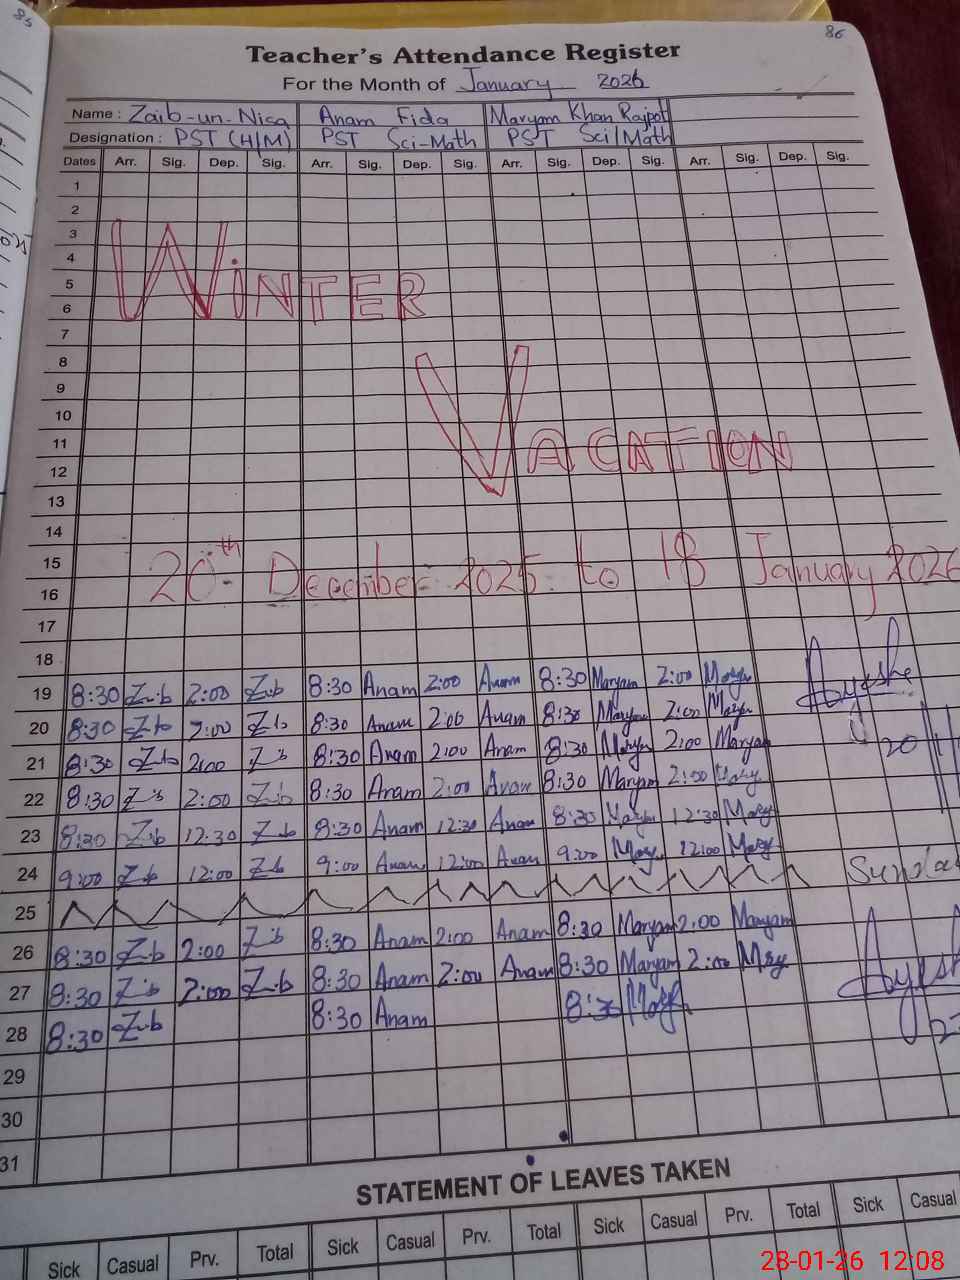 85
86
Teacher's Attendance Register
For the Month of January 2026
Name : Zaib-un-Nisa Anam Fida Maryam Khan Rajpot
Designation : PST (H/M) PST Sci-Math PST Sci/Math
Dates Arr. Sig. Dep. Sig. Arr. Sig. Dep. Sig. Arr. Sig. Dep. Sig. Arr. Sig. Dep. Sig.
1
2
3
4
WINTER
5
6
7
8
9
10
VACATION
11
12
13
14
15
20th December 2025 to 18 January 2026
16
17
18
19 8:30 Z-b 2:00 Z-b 8:30 Anam 2:00 Anam 8:30 Maryam 2:00 Mary Ayesha
20 8:30 Z-b 2:00 Z-b 8:30 Anam 2:00 Anam 8:30 Mary 2:00 Mary 20
21 8:30 Z-b 2:00 Z-b 8:30 Anam 2:00 Anam 8:30 Mary 2:00 Maryam
22 8:30 Z-b 2:00 Z-b 8:30 Anam 2:00 Anam 8:30 Maryam 2:00 Mary
23 8:30 Z-b 12:30 Z-b 8:30 Anam 12:30 Anam 8:30 Mary 12:30 Mary
24 9:00 Z-b 12:00 Z-b 9:00 Anam 12:00 Anam 9:00 Mary 12:00 Mary
25 Sunda
26 8:30 Z-b 2:00 Z-b 8:30 Anam 2:00 Anam 8:30 Maryam 2:00 Maryam
27 8:30 Z-b 2:00 Z-b 8:30 Anam 2:00 Anam 8:30 Maryam 2:00 Mry Ayesh
28 8:30 Z-b 8:30 Anam 8:30 Mary
29
30
31
STATEMENT OF LEAVES TAKEN
Sick Casual Prv. Total Sick Casual Prv. Total Sick Casual Prv. Total Sick Casual
28-01-26 12:08